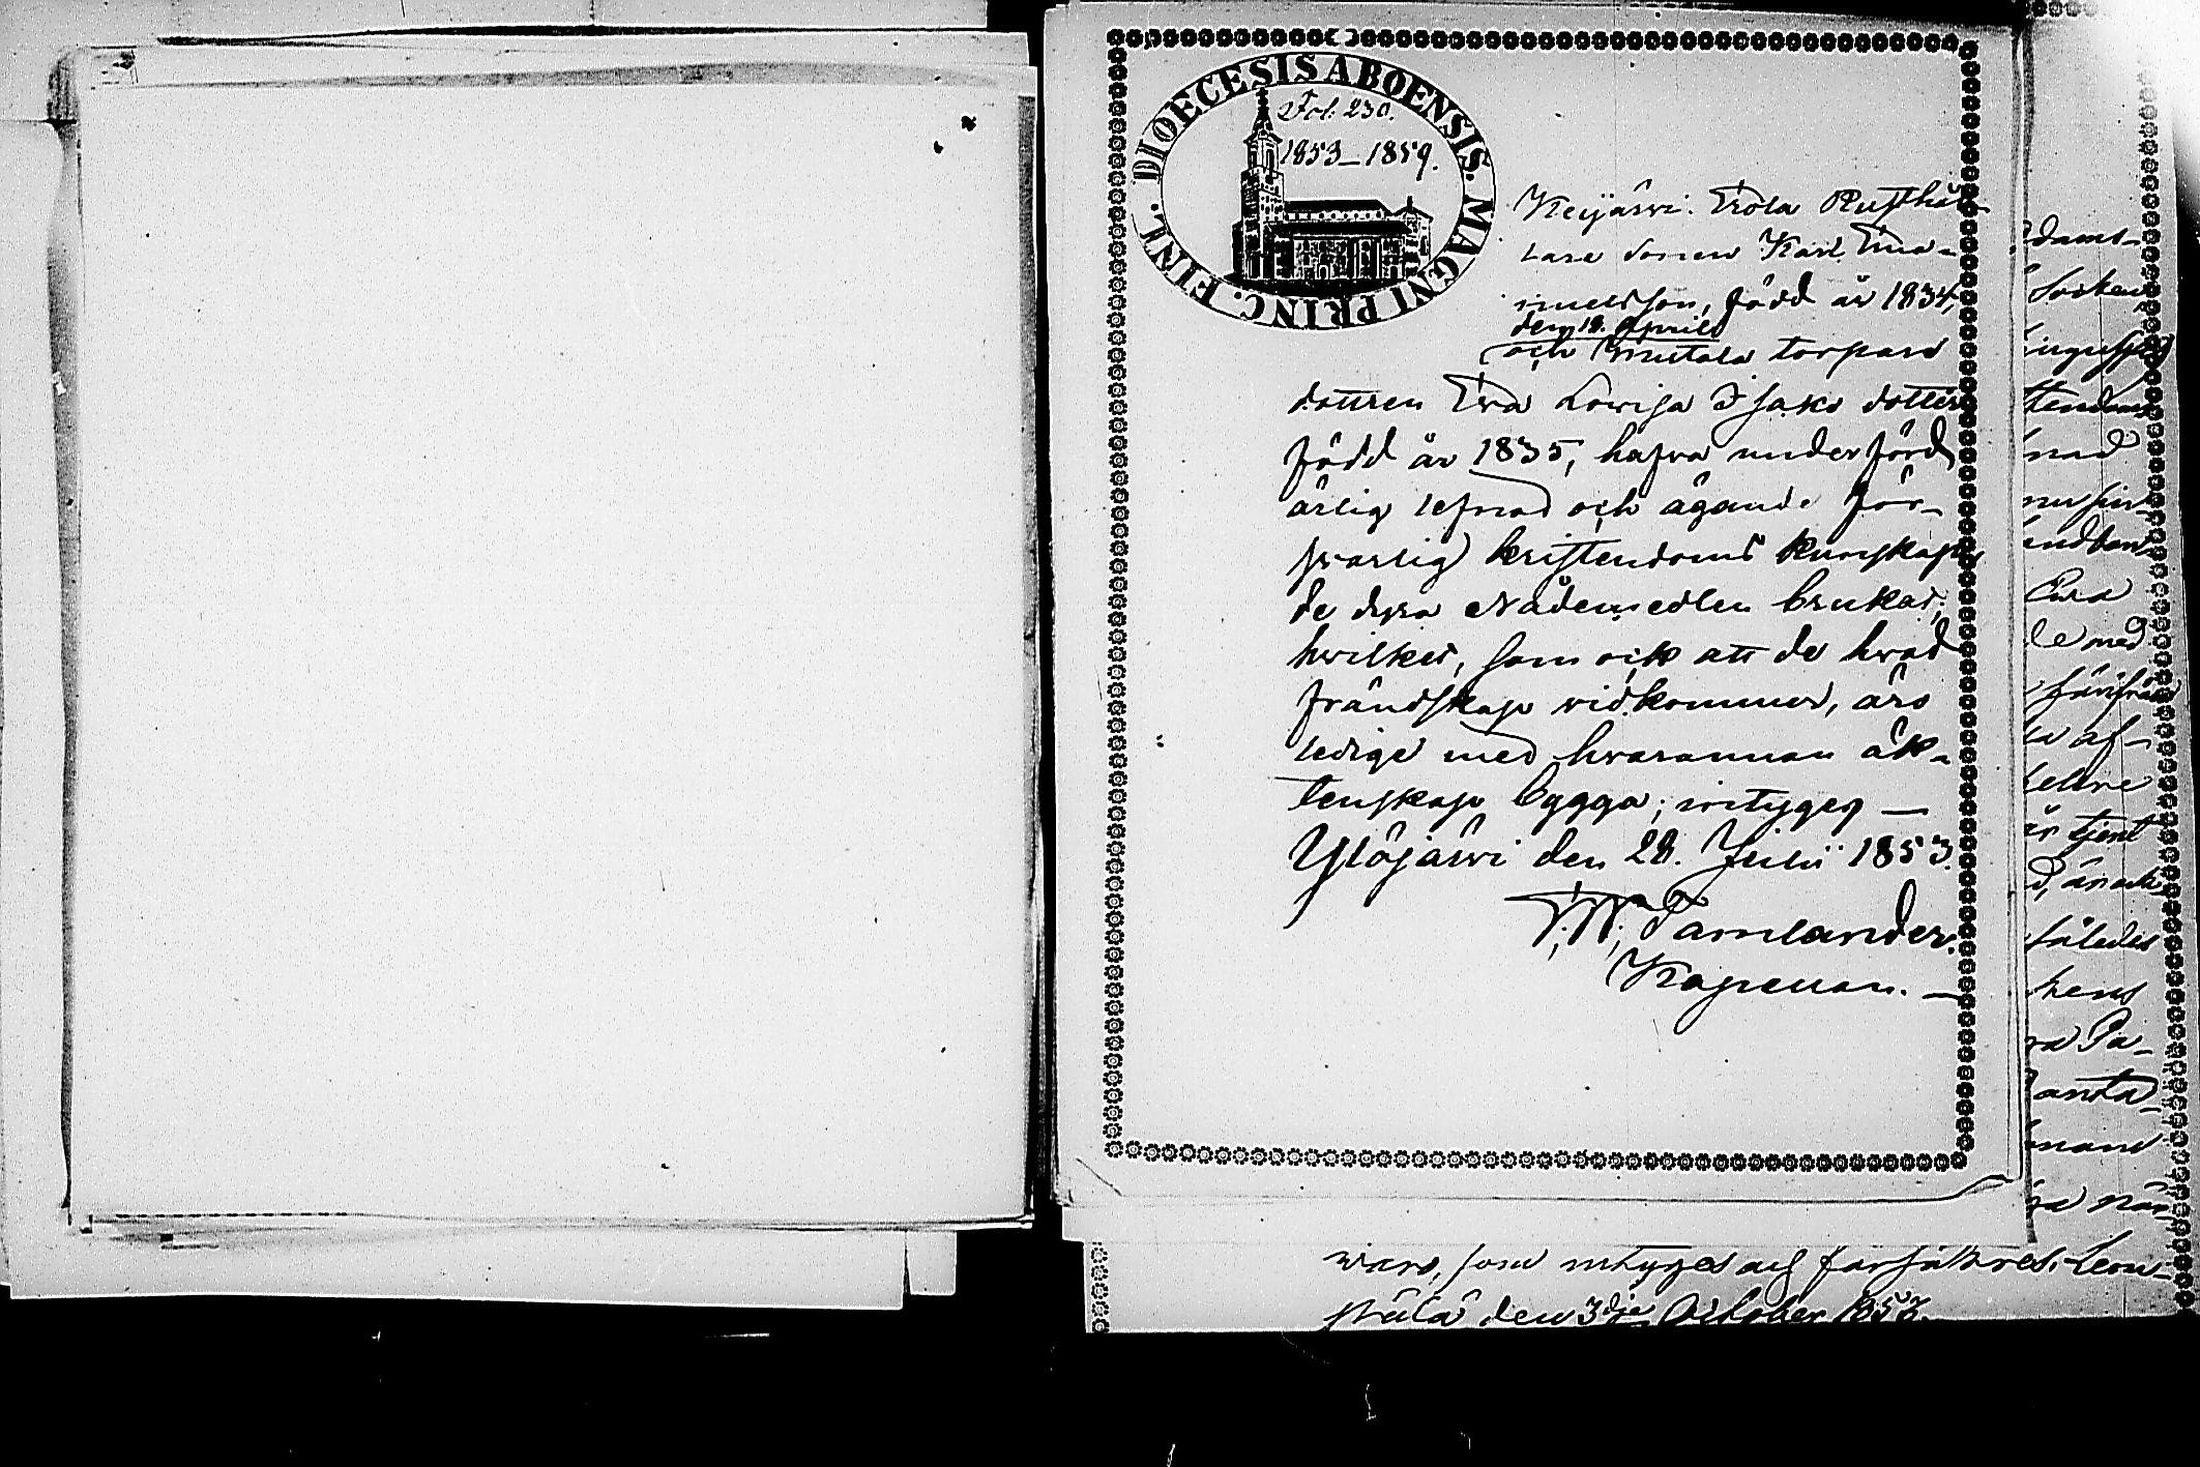 DIOECESIS ABOENSIS. MAGNI PRINC. FINL.
Fol. 230.
1853–1859.
Keijärvi Erola Rusthål-
lare sonen Karl Ema-
nuelsson, född år 1834,
den 18. Aprill
och Mutala torpare
dottren Eva Lovisa Isaks dotter
född år 1835, hafva under förd
ärlig lefnad och ägande för-
svarlig kristendoms kunskap
de dyra Nådemedlen brukat;
hvilket, som ock att de hvad
frändskap vidkommer, äro
ledige med hvarannan äk-
tenskap bygga; intygeg —
Ylöjärvi den 28. Julii 1853.
F. W. Tamlander.
Kapellan. —
dams-
Socken
nad
Eva
le med
tjent
således
ra Pa-
vara, som intygas af
den 3dje October 1853.